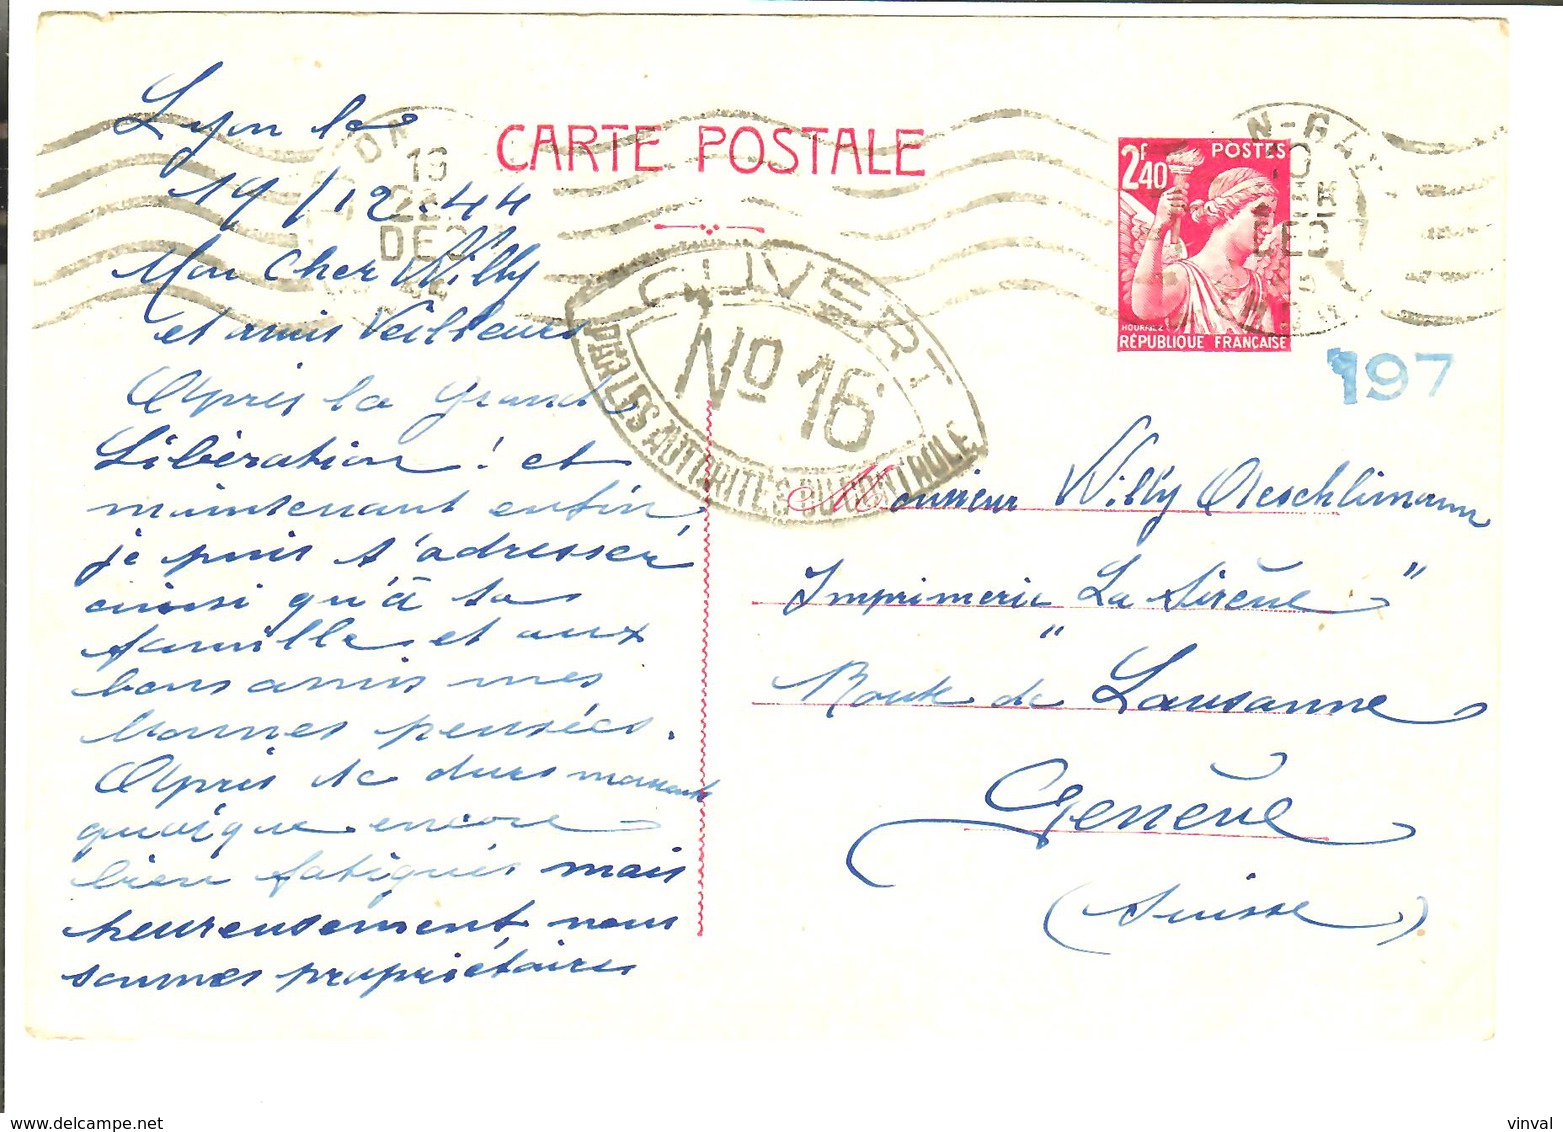 CARTE POSTALE
2F40
POSTES
HOURRIEZ
RÉPUBLIQUE FRANÇAISE
19
DEC
N-GA
DEC
OUVERT
No 16
PAR LES AUTORITÉS DU CONTROLE
197
Lyon le
19/12.44
Mon Cher Willy
et amis Veilleurs
Après la grande
Libération! et
maintenant enfin
je puis t'adresser
ainsi qu'à ta
famille et aux
bons amis mes
bonnes pensées.
Après de durs moments
quoique encore
bien fatigués mais
heureusement nous
sommes propriétaires
Monsieur Willy Aeschlimann
Imprimerie "La Sirène"
Route de Lausanne
Genève
(Suisse)
www.delcampe.net
vinval